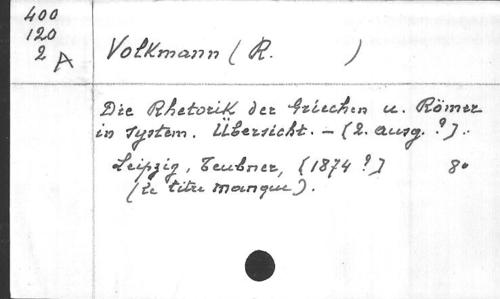 400
120
2 A
Volkmann (R. )
Die Rhetorik der Griechen u. Römer
in system. Übersicht. – [2. ausg. ?].
Leipzig, Teubner, [1874 ?] 8°
(le titre manque).